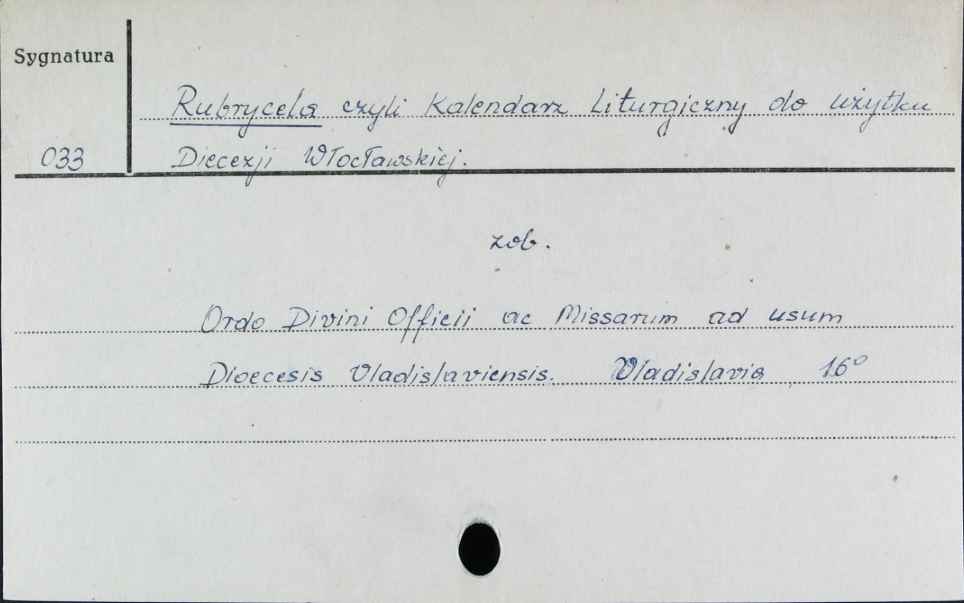 Sygnatura
Rubrycela czyli Kalendarz Liturgiczny do użytku
033 Diecezji Włocławskiej.
zob.
Ordo Divini Officii ac Missarum ad usum
Dioecesis Vladislaviensis. Vladislavia 16°